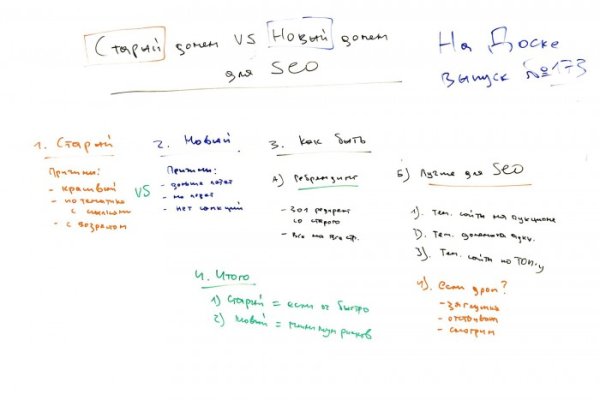 Старый домен VS Новый домен
для SEO
На Доске
выпуск №173
1. Старый
Причины:
- красивый
- по тематике
с ссылками
- с возрастом
VS
2. Новый
Причины:
- дольше
- нет санкций
3. Как быть
А) Ребрендинг
- 301 редирект
со старого
- Все на все стр.
Б) Лучше для SEO
1). Тем. сайты на аукционе
2). Тем. домены аукц.
3). Тем. сайты по ТОП-у
4). Если дроп?
- загнулись
- отстойник
- смотрим
4. Итого
1) Старый = если оч быстро
2) Новый = минимум рисков